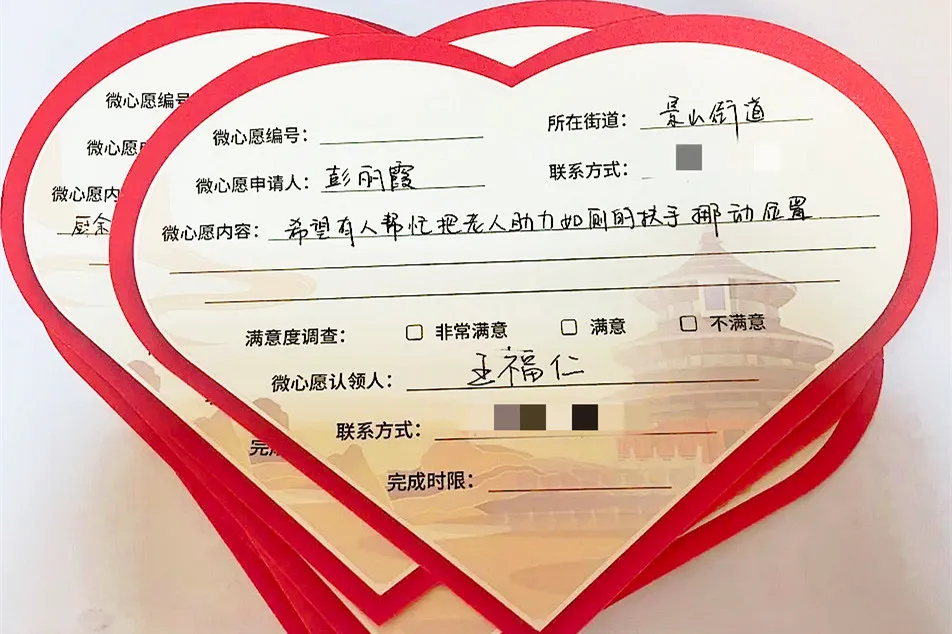 微心愿编号:
所在街道: 景山街道
微心愿申请人: 彭丽霞
联系方式:
微心愿内容: 希望有人帮忙把老人助力如厕的扶手挪动位置
满意度调查: □ 非常满意 □ 满意 □ 不满意
微心愿认领人: 王福仁
联系方式:
完成时限:
微心愿编号
微心愿
微心愿内
厨余
完